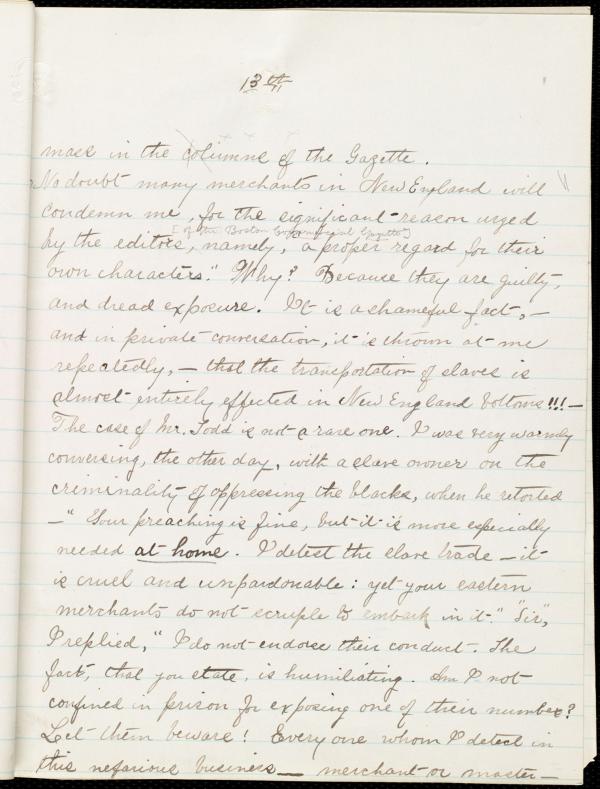 13th
mass in the columns of the Gazette.
No doubt many merchants in New England will
condemn me, for the significant reason urged
[of the Boston Commercial Gazette]
by the editors, namely, "a proper regard for their
own characters." Why? Because they are guilty,
and dread exposure. It is a shameful fact,—
and in private conversation, it is thrown at me
repeatedly,— that the transportation of slaves is
almost entirely effected in New England bottoms!!!—
The case of Mr. Todd is not a rare one. I was very warmly
conversing, the other day, with a slave owner on the
criminality of oppressing the blacks, when he retorted
—"Your preaching is fine, but it is more especially
needed at home. I detest the slave trade — it
is cruel and unpardonable: yet your eastern
merchants do not scruple to embark in it." "Sir",
I replied, "I do not endorse their conduct. The
fact, that you state, is humiliating. Am I not
confined in prison for exposing one of their number?
Let them beware! Every one whom I detect in
this nefarious business — merchant or master —